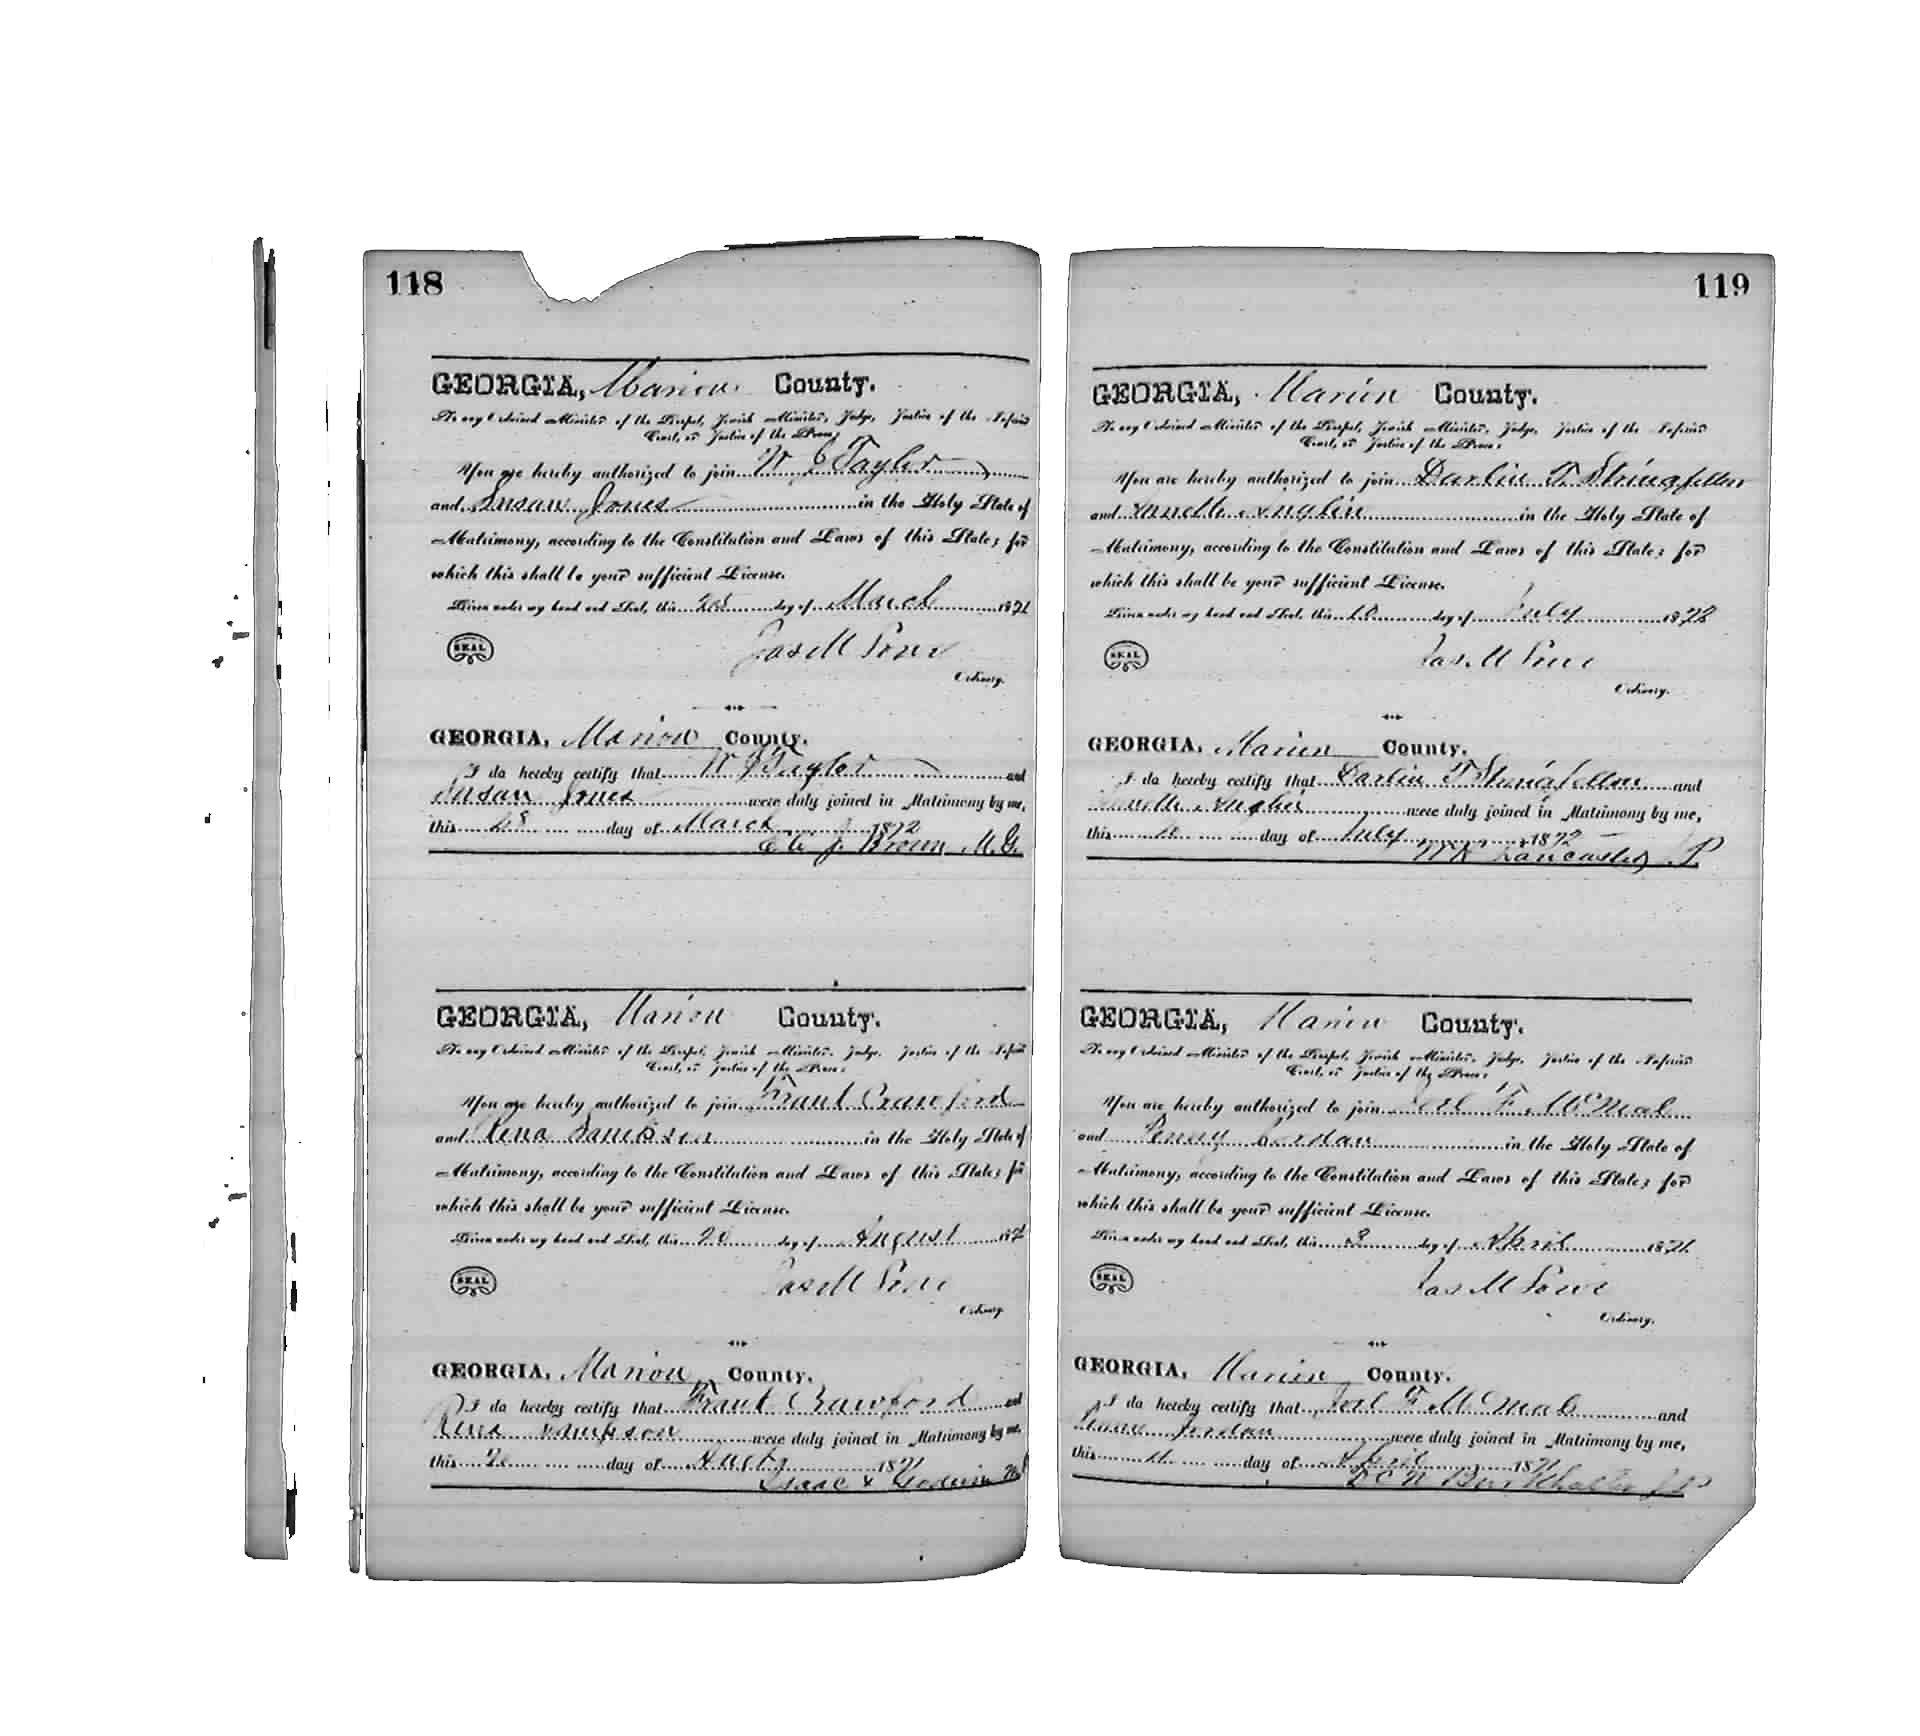 118
GEORGIA, Marion County.
To any Ordained Minister of the Gospel, Jewish Minister, Judge, Justice of the Inferior
Court, or Justice of the Peace:
You are hereby authorized to join W J Taylor
and Susan Jones in the Holy State of
Matrimony, according to the Constitution and Laws of this State; for
which this shall be your sufficient License.
Given under my hand and Seal, this 28 day of March 1872
SEAL
Jas M Lowe
Ordinary.
GEORGIA, Marion County.
I do hereby certify that W J Taylor and
Susan Jones were duly joined in Matrimony by me,
this 28 day of March 1872
J. Brown M.G.
GEORGIA, Marion County.
To any Ordained Minister of the Gospel, Jewish Minister, Judge, Justice of the Inferior
Court, or Justice of the Peace:
You are hereby authorized to join Frank Crawford
and Rena Sampson in the Holy State of
Matrimony, according to the Constitution and Laws of this State; for
which this shall be your sufficient License.
Given under my hand and Seal, this 20 day of August 187
SEAL
Jas M Lowe
Ordinary.
GEORGIA, Marion County.
I do hereby certify that Frank Crawford and
Rena Sampson were duly joined in Matrimony by me,
this 20 day of Augt 1871
Isaac Godwin
119
GEORGIA, Marion County.
To any Ordained Minister of the Gospel, Jewish Minister, Judge, Justice of the Inferior
Court, or Justice of the Peace:
You are hereby authorized to join Darlin T. Stringfellow
and Anglin in the Holy State of
Matrimony, according to the Constitution and Laws of this State; for
which this shall be your sufficient License.
Given under my hand and Seal, this 10 day of July 1872
SEAL
Jas M Lowe
Ordinary.
GEORGIA, Marion County.
I do hereby certify that Darlin T Stringfellow and
Anglin were duly joined in Matrimony by me,
this day of July 1872
Lancaster J P
GEORGIA, Marion County.
To any Ordained Minister of the Gospel, Jewish Minister, Judge, Justice of the Inferior
Court, or Justice of the Peace:
You are hereby authorized to join Joel F. McNeal
and Penny Jordan in the Holy State of
Matrimony, according to the Constitution and Laws of this State; for
which this shall be your sufficient License.
Given under my hand and Seal, this 3 day of April 1871
SEAL
Jas M Lowe
Ordinary.
GEORGIA, Marion County.
I do hereby certify that Joel F McNeal and
Penny Jordan were duly joined in Matrimony by me,
this 11 day of April 1871
Burkhalter J P